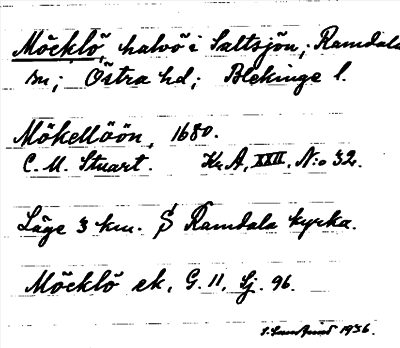 Möcklö, halvö i Saltsjön; Ramdala
sn; Östra hd; Blekinge l.
Mökellöön, 1680.
C. M. Stuart. Kr. A, XXII, N:o 32.
Läge 3 km. S Ramdala kyrka.
Möcklö ek, G. 11, Sj. 96.
1936.